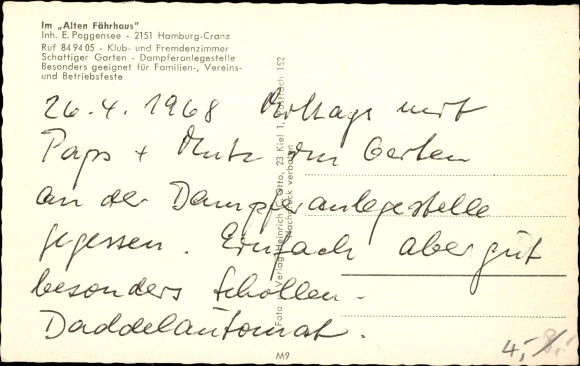 Im „Alten Fährhaus"
Inh. E. Poggensee - 2151 Hamburg-Cranz
Ruf 84 94 05 - Klub- und Fremdenzimmer
Schattiger Garten - Dampferanlegestelle
Besonders geeignet für Familien-, Vereins-
und Betriebsfeste
26.4.1968 Mittags mit
Paps + Mutz im Garten
an der Dampferanlegestelle
gegessen. Einfach aber gut
besonders Schollen.
Daddelautomat.
Foto Verlag Heinrich Otto, 23 Kiel 1, Postfach 152
Nachdruck verboten
M9
4,-